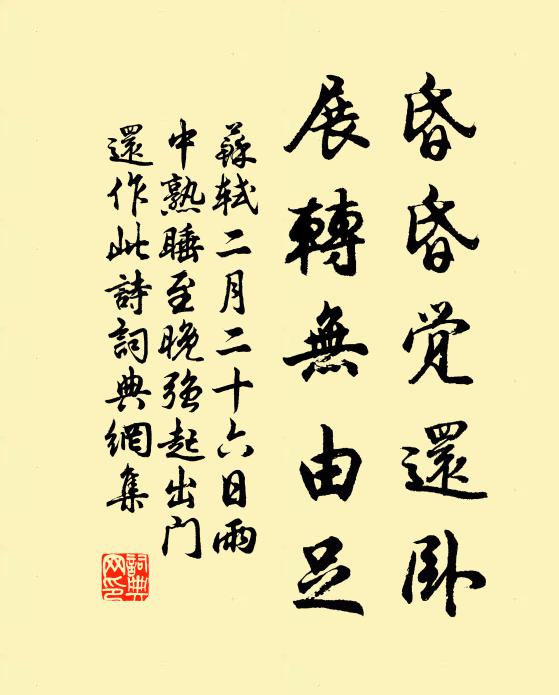 昏昏觉還卧
展轉無由足
蘇軾二月二十六日雨
中熟睡至晚強起出门
還作此詩詞典網集
詞典網印